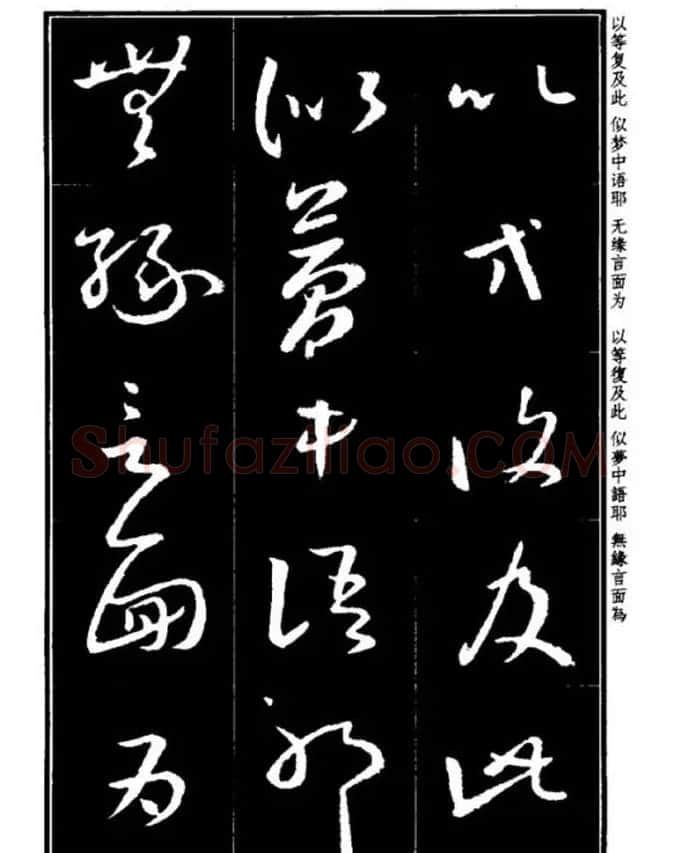 以等復及此
似夢中語耶
無緣言面為
以等复及此 似梦中语耶 无缘言面为
以等復及此 似夢中語耶 無緣言面為
Shufaziliao.COM